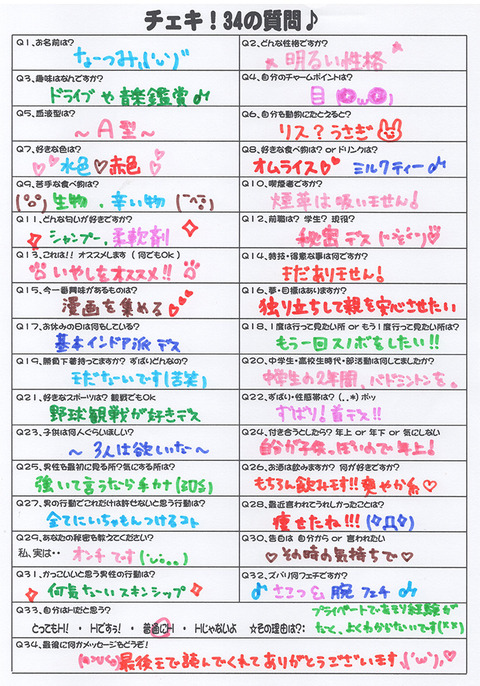 チェキ！34の質問♪
Q1、お名前は？
なーつみ,('ω')
Q2、どんな性格ですか？
明るい性格
Q3、趣味はなんですか？
ドライブや音楽鑑賞♪
Q4、自分のチャームポイントは？
目
Q5、血液型は？
～A型～
Q6、自分を動物にたとえると？
リス？うさぎ
Q7、好きな色は？
水色♡赤色
Q8、好きな食べ物は？orドリンクは？
オムライス♡ ミルクティー♪
Q9、苦手な食べ物は？
生物、辛い物
Q10、喫煙者ですか？
煙草は吸いません！
Q11、どんな匂いが好きですか？
シャンプー、柔軟剤
Q12、前職は？学生？現役？
秘密デス
Q13、これは！！オススメします（何でもOk）
いやしをオススメ!!
Q14、特技・得意な事は何ですか？
まだありません！
Q15、今一番興味があるものは？
漫画を集める
Q16、夢・目標はありますか？
独り立ちして親を安心させたい
Q17、お休みの日は何をしている？
基本インドア派デス
Q18、1度は行って見たい所orもう1度行って見たい所は？
もう一回スノボをしたい!!
Q19、勝負下着持ってますか？ずばりどんなの？
まだないです(苦笑)
Q20、中学生・高校生時代・部活動は何してましたか？
中学生の2年間、バドミントンを。
Q21、好きなスポーツは？観戦でもOk
野球観戦が好きデス
Q22、ずばり・性感帯は？(．．*)ポッ
ずばり！首デス!!
Q23、子供は何人ぐらいほしい？
～3人は欲しいなー～
Q24、付き合うとしたら？年上or年下or気にしない
自分が子供っぽいので年上！
Q25、男性を最初に見る所？気にする所は？
強いて言うなら手カナ
Q26、お酒は飲みますか？何が好きですか？
もちろん飲みます!!爽やか系♡
Q27、男の行動でこれだけは許せないと思う行動は？
全てにいちゃもんつけるコト
Q28、最近言われてうれしかったことは？
痩せたね!!!
Q29、あなたの秘密も教えてください？
私、実は・・オンチです
Q30、告白は 自分からor言われたい
♡その時の気持ちで♡
Q31、かっこいいと思う男性の行動は？
何気ないスキンシップ
Q32、ズバリ何フェチですか？
さこつ&腕フェチ
Q33、自分はHだと思う？
とってもH！・Hですぅ！・普通にH・Hじゃないよ ☆その理由は？：
プライベートであまり経験がなく、よくわからないです(××)
Q34、最後に何かメッセージをどうぞ！
最後まで読んでくれてありがとうございます,('ω'),♡